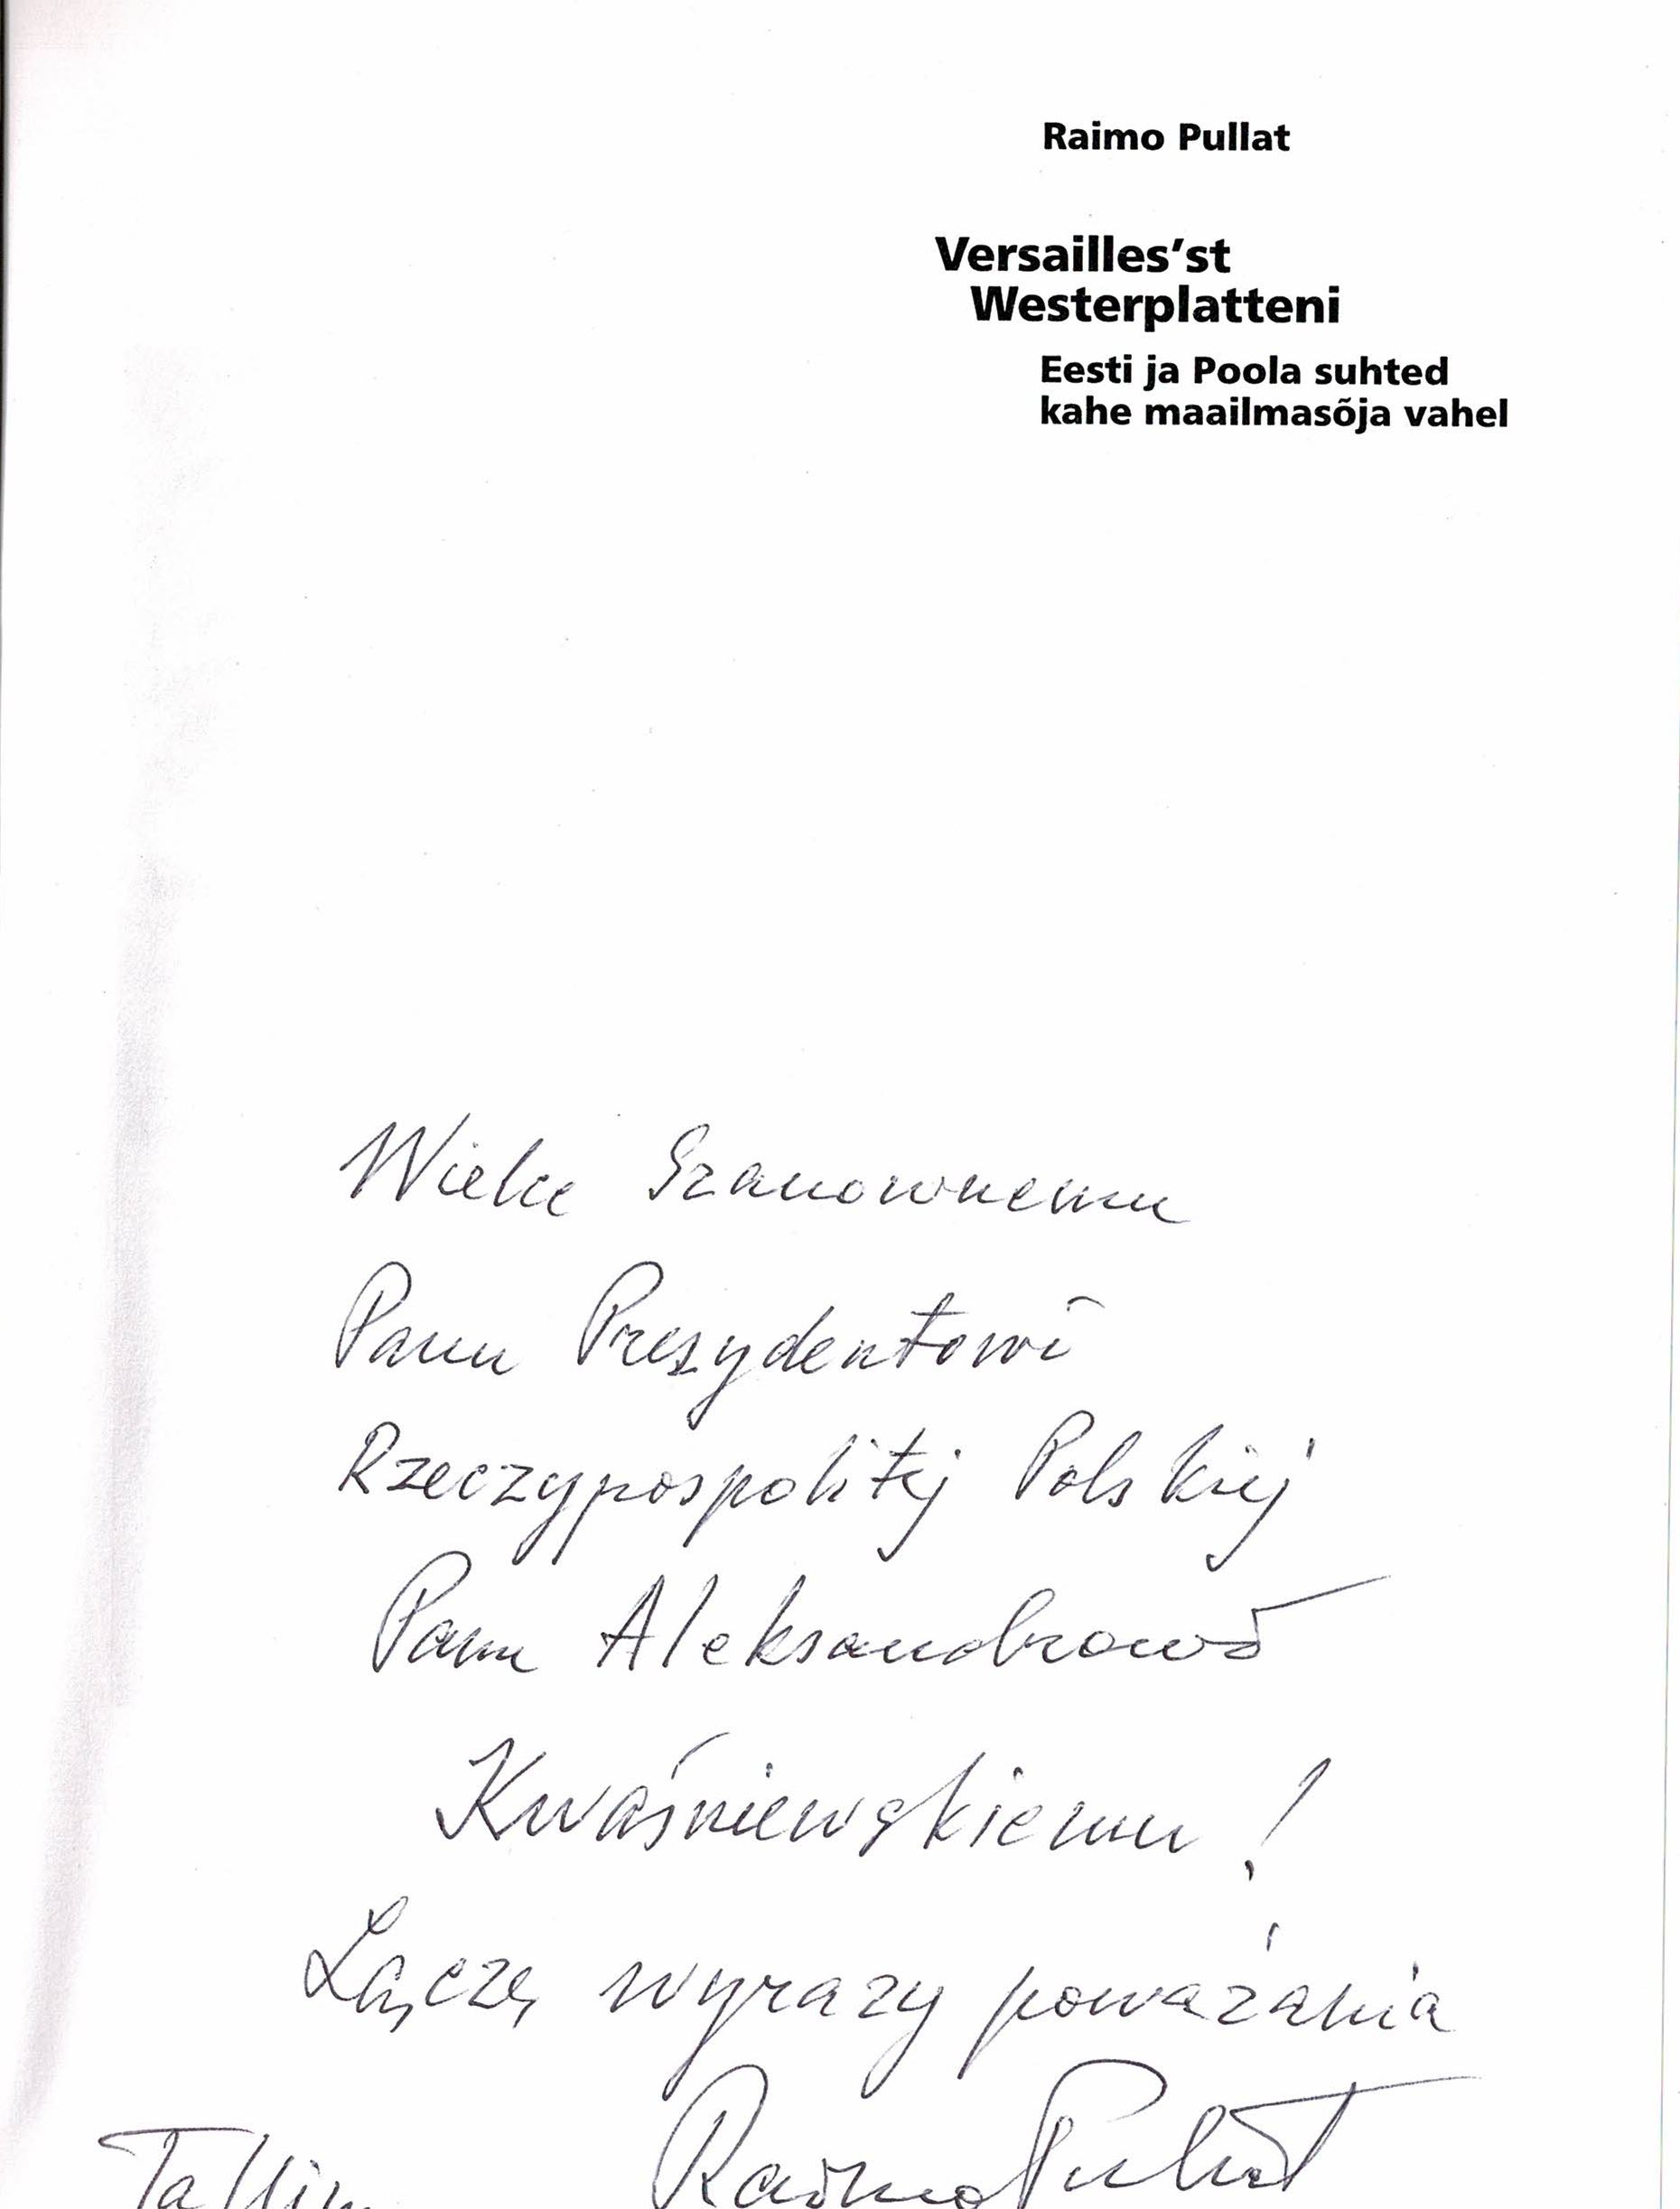 Raimo Pullat
Versailles'st
Westerplatteni
Eesti ja Poola suhted
kahe maailmasõja vahel
Wielce Szanownemu
Panu Prezydentowi
Rzeczypospolitej Polskiej
Panu Aleksandrowi
Kwaśniewskiemu!
Łączę wyrazy poważania
Tallinn Raimo Pullat